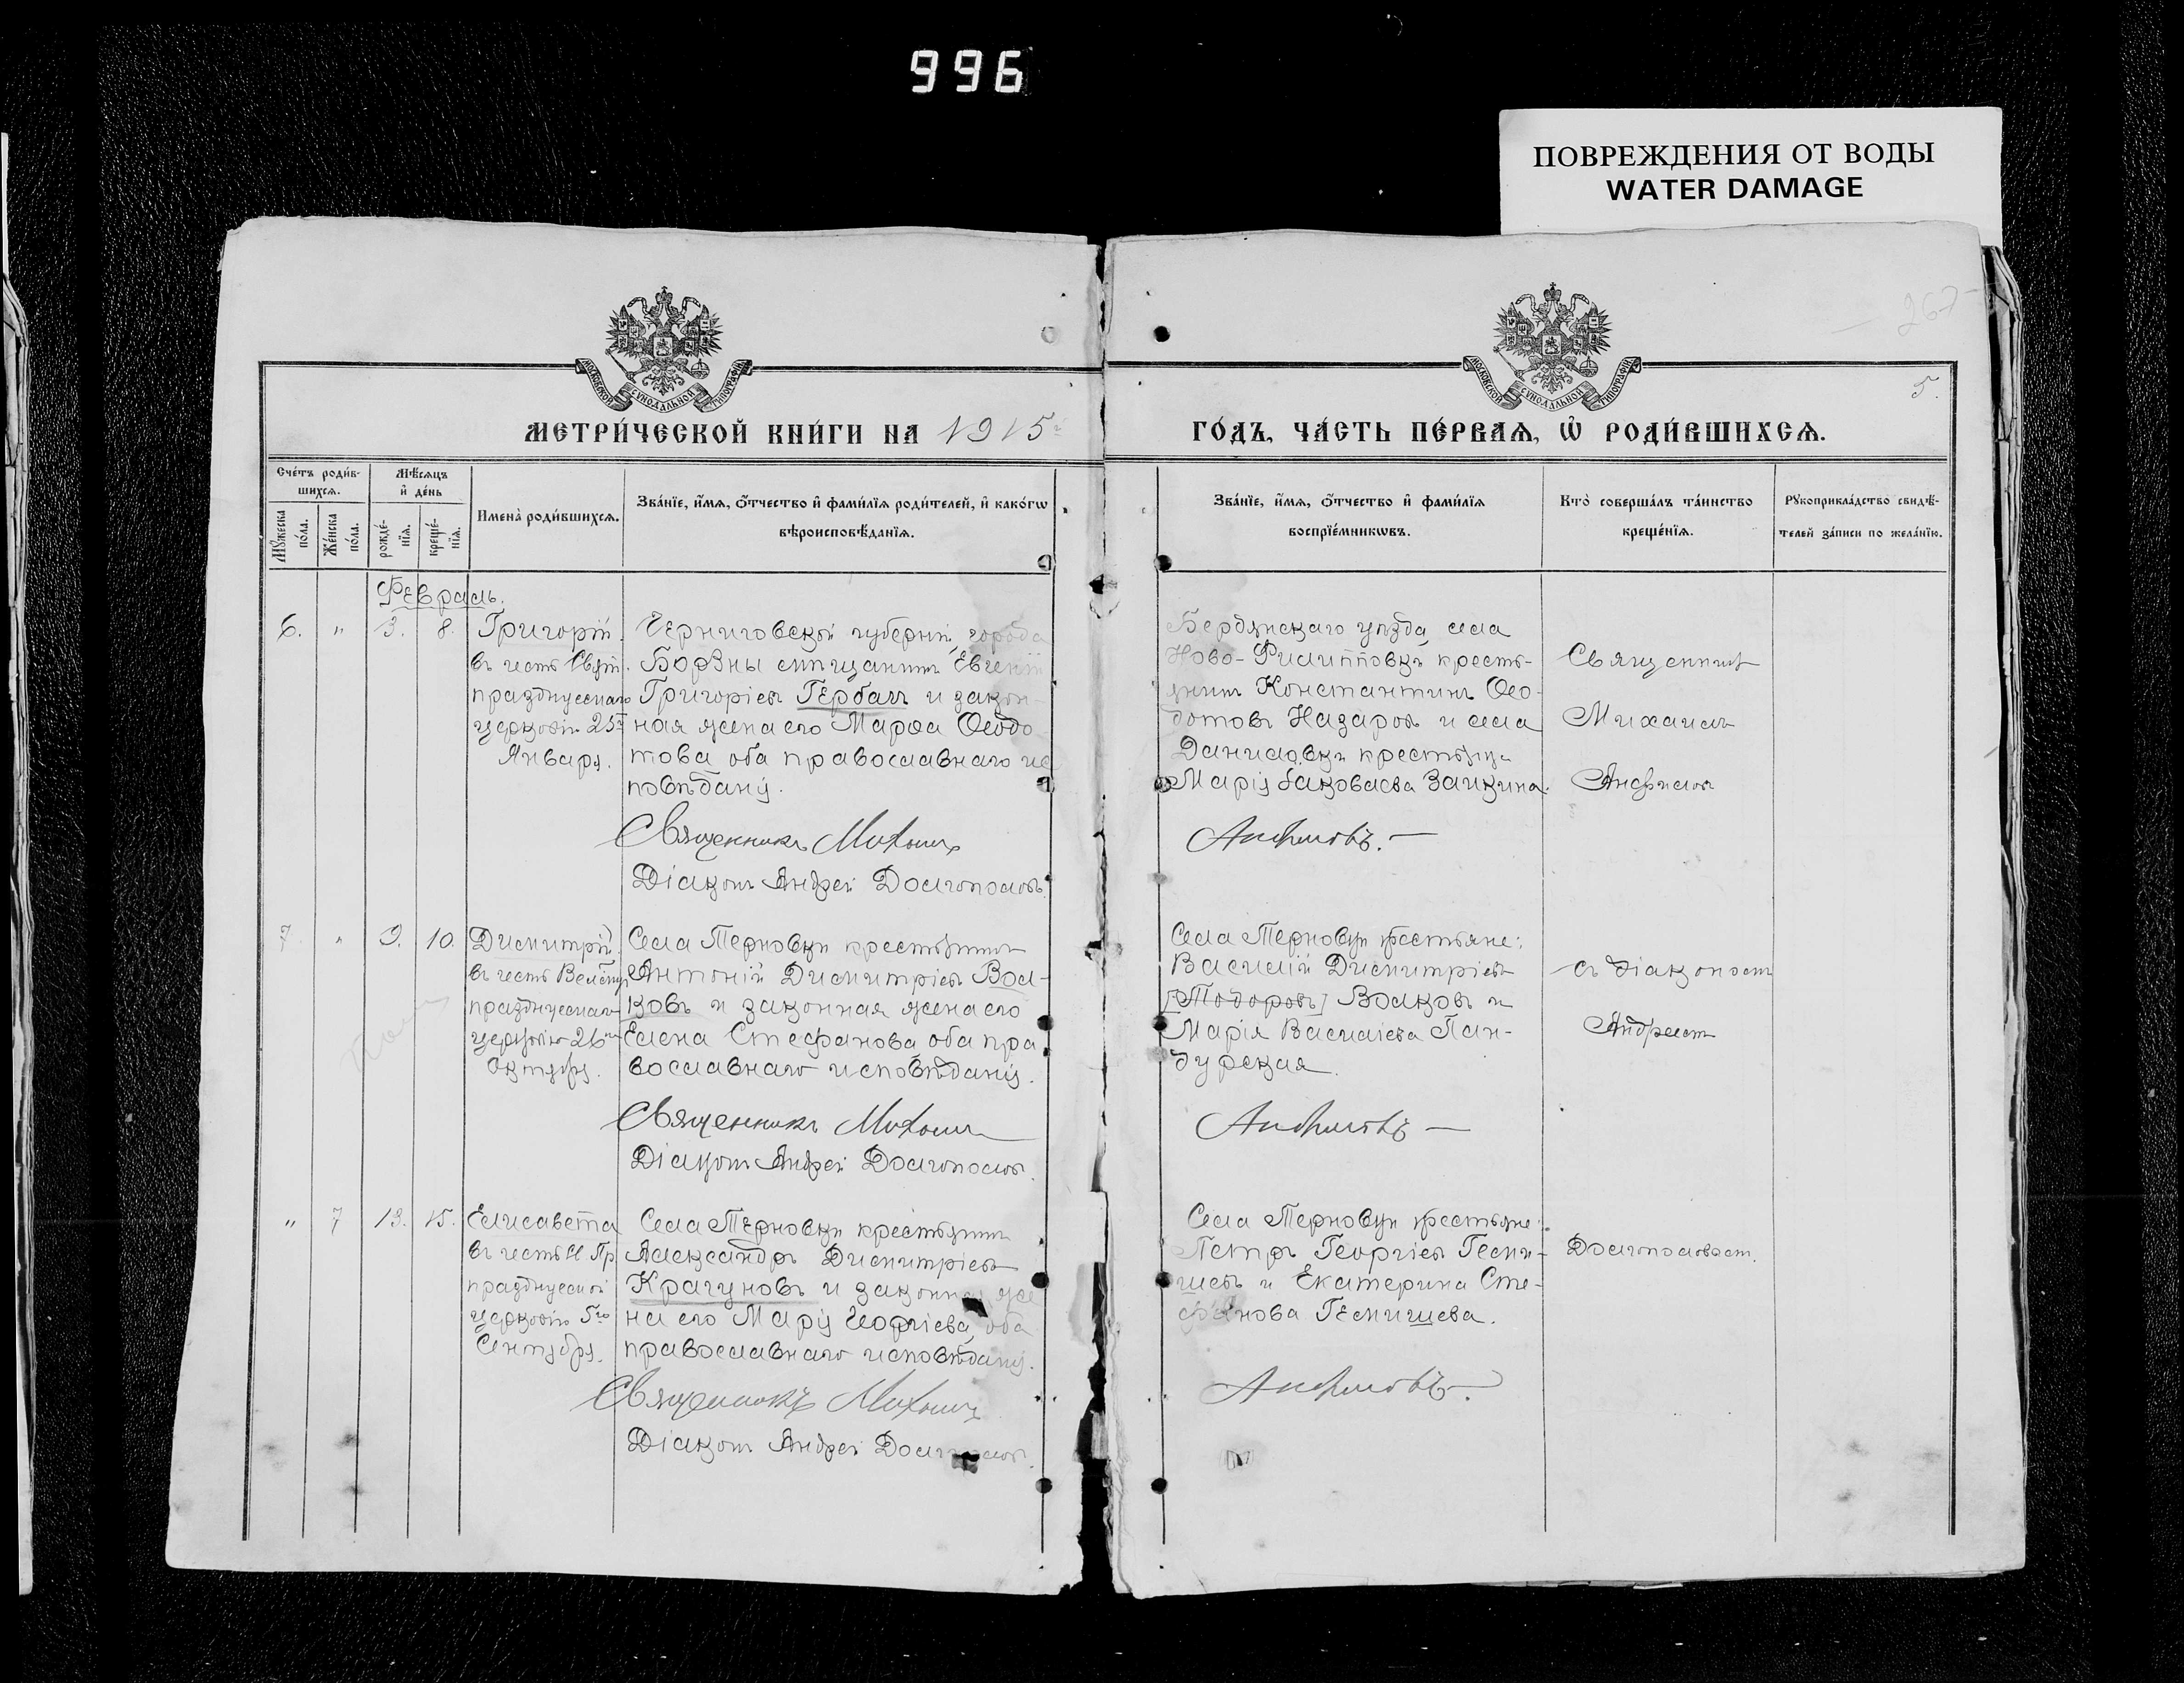 996
ПОВРЕЖДЕНИЯ ОТ ВОДЫ
WATER DAMAGE
267
5.
МОСКОВСКОЙ СУНОДАЛЬНОЙ ТИПОГРАФІИ
МОСКОВСКОЙ СУНОДАЛЬНОЙ ТИПОГРАФІИ
МЕТРИ́ЧЕСКОЙ КНИ́ГИ НА 1915 ГО́ДЪ, ЧА́СТЬ ПЕ́РВАѦ, Ѡ҆ РОДИ́ВШИХСѦ.
Сче́тъ роди́в-
шихсѧ.
Мꙋ́жеска по́ла.
Же́нска по́ла.
Мѣ́сѧцъ
и҆ де́нь
рожде́-
нїѧ.
креще́-
нїѧ.
Имена̀ роди́вшихсѧ.
Зва́нїе, и҆́мѧ, ѻ҆́тчество и҆ фами́лїѧ роди́телей, и҆ како́гѡ
вѣроисповѣ́данїѧ.
Зва́нїе, и҆́мѧ, ѻ҆́тчество и҆ фами́лїѧ
воспрїе́мникѡвъ.
Кто̀ соверша́лъ та́инство
креще́нїѧ.
Рꙋкоприкла́дство свидѣ́-
телей за́писи по жела́нїю.
Февраль.
6. " 3. 8.
Григорій.
въ честь Свят.
празднуемаго
церковію 25го
Января.
Черниговской губерніи, города
Борзны мѣщанинъ Евгеній
Григоріевъ Гербачъ и закон-
ная жена его Марѳа Ѳеодо
това оба православнаго ис
повѣданія.
Священникъ Михаилъ
Діаконъ Андрей Долгополовъ.
Бердянскаго уѣзда села
Ново-Филипповки кресть-
янинъ Константинъ Ѳео-
дотовъ Назаровъ и села
Даниловки крестьянка
Марія Заикина.
Анфиловъ.
Священникъ
Михаилъ
Анфиловъ
7. " 9. 10.
Димитрій.
въ честь Великом.
празднуемаго
церковію 26го
Октября.
Села Терновки крестьянинъ
Антоній Димитріевъ Вол-
ковъ и законная жена его
Елена Стефанова оба пра
вославнаго исповѣданія.
Священникъ Михаилъ
Діаконъ Андрей Долгополовъ.
Села Терновки крестьяне:
Василій Димитріевъ
[Тодоровъ] Волковъ и
Марія Василіева Пан-
дурская.
Анфиловъ
съ діакономъ
Андреемъ
" 7 13. 15.
Елисавета
въ честь Пр
празднуемой
церковію 5го
Сентября.
Села Терновки крестьянинъ
Александръ Димитріевъ
Крагуновъ и законная же
на его Марія Георгіева, оба
православнаго исповѣданія.
Священникъ Михаилъ
Діаконъ Андрей Долгополовъ.
Села Терновки крестьяне:
Петръ Георгіевъ Геми-
шевъ и Екатерина Сте-
фанова Гемишева.
Анфиловъ.
Долгополовымъ.